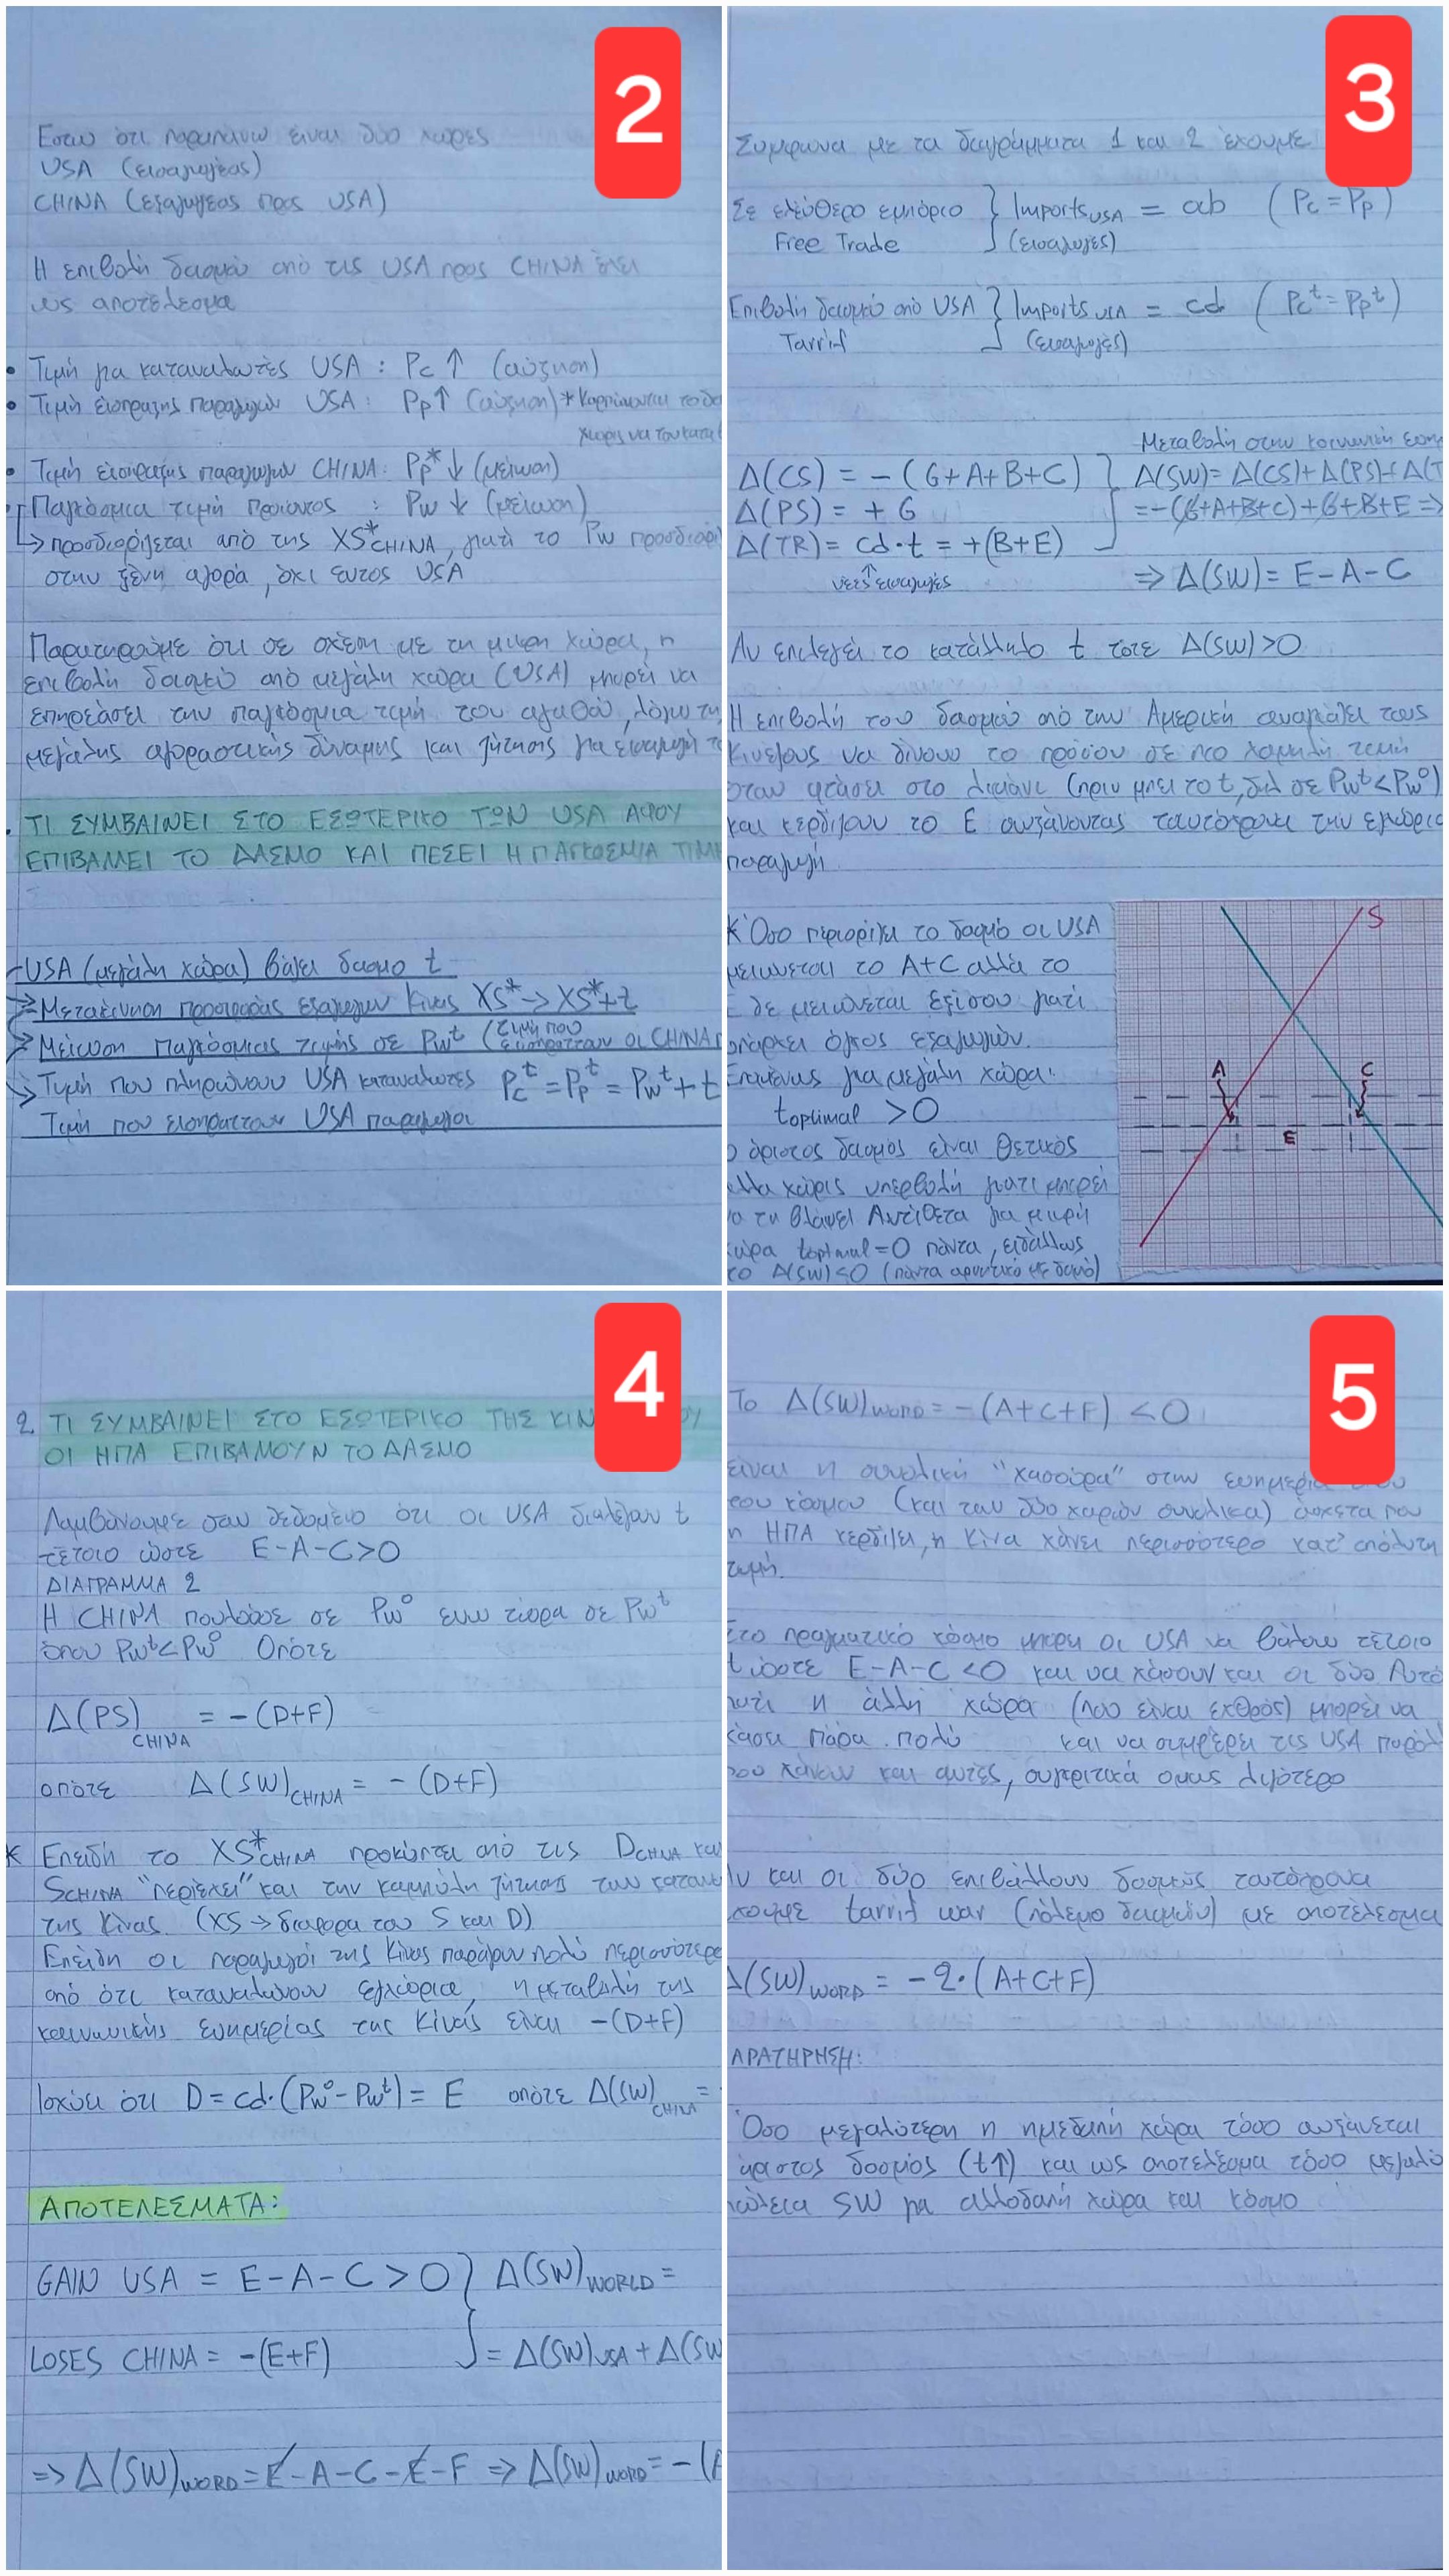 2
Εστω ότι παραπάνω είναι δύο χώρες
USA (εισαγωγέας)
CHINA (εξαγωγέας προς USA)
Η επιβολή δασμού από τις USA προς CHINA έχει
ως αποτέλεσμα
• Τιμή για καταναλωτές USA : Pc ↑ (αύξηση)
• Τιμή είσπραξης παραγωγών USA : Pp↑ (αύξηση) * καρπώνονται το δα
χωρίς να τον κατα
• Τιμή είσπραξης παραγωγών CHINA: Pp* ↓ (μείωση)
• Παγκόσμια τιμή προϊόντος : Pw ↓ (μείωση)
↳ προσδιορίζεται από της XS*CHINA, γιατί το Pw προσδιορί
στην ξένη αγορά, όχι εντός USA
Παρατηρούμε ότι σε σχέση με τη μικρή χώρα, η
επιβολή δασμού από μεγάλη χώρα (USA) μπορεί να
επηρεάσει την παγκόσμια τιμή του αγαθού, λόγω τη
μεγάλης αγοραστικής δύναμης και ζήτησης για εισαγωγή τ
. ΤΙ ΣΥΜΒΑΙΝΕΙ ΣΤΟ ΕΣΩΤΕΡΙΚΟ ΤΩΝ USA ΑΦΟΥ
ΕΠΙΒΑΛΛΕΙ ΤΟ ΔΑΣΜΟ ΚΑΙ ΠΕΣΕΙ Η ΠΑΓΚΟΣΜΙΑ ΤΙΜ
USA (μεγάλη χώρα) βάζει δασμο t
=> Μετακίνηση προσφοράς εξαγωγών Κίνας XS* -> XS*+t
=> Μείωση παγκόσμιας τιμής σε Pwᵗ (τιμή που
εισπράττουν οι CHINA
=> Τιμή που πληρώνουν USA καταναλωτές Pcᵗ = Ppᵗ = Pwᵗ + t
Τιμή που εισπράττουν USA παραγωγοί
3
Σύμφωνα με τα διαγράμματα 1 και 2 έχουμε
Σε ελεύθερο εμπόριο } Imports USA = ab ( Pc = Pp )
Free Trade (εισαγωγές)
Επιβολή δασμού από USA } Imports USA = cd ( Pcᵗ = Ppᵗ )
Tarrif (εισαγωγές)
Μεταβολή στην κοινωνική ευημ
Δ(CS) = - (G+A+B+C) } Δ(SW) = Δ(CS)+Δ(PS)+Δ(T
Δ(PS) = + G = -(G+A+B+C)+G+B+E =>
Δ(TR) = cd·t = +(B+E)
νέες εισαγωγές => Δ(SW) = E-A-C
Αν επιλεγεί το κατάλληλο t τότε Δ(SW)>0
Η επιβολή του δασμού από την Αμερική αναγκάζει τους
Κινέζους να δίνουν το προϊόν σε πιο χαμηλή τιμή
όταν φτάσει στο λιμάνι (πριν μπει το t, δηλ σε Pwᵗ < Pw⁰)
και κερδίζουν το E αυξάνοντας ταυτόχρονα την εγχώρια
παραγωγή.
* Όσο περιορίζει το δασμό οι USA
μειώνεται το A+C αλλά το
E δε μειώνεται εξίσου γιατί
υπάρχει όγκος εξαγωγών.
Επομένως για μεγάλη χώρα:
toptimal >0
ο άριστος δασμός είναι θετικός
αλλα χωρίς υπερβολή γιατι μπορεί
να τη βλάψει Αντίθετα για μικρή
χώρα toptimal=0 πάντα, ειδάλλως
το Δ(SW)<0 (πάντα αρνητικό με δασμό)
S
A
C
E
4
2. ΤΙ ΣΥΜΒΑΙΝΕΙ ΣΤΟ ΕΣΩΤΕΡΙΚΟ ΤΗΣ ΚΙΝ ΟΥ
ΟΙ ΗΠΑ ΕΠΙΒΑΛΛΟΥΝ ΤΟ ΔΑΣΜΟ
Λαμβάνουμε σαν δεδομένο ότι οι USA διαλέγουν t
τέτοιο ώστε E-A-C>0
ΔΙΑΓΡΑΜΜΑ 2
Η CHINA πουλούσε σε Pw⁰ ενω τώρα σε Pwᵗ
όπου Pwᵗ<Pw⁰ Οπότε
Δ(PS)CHINA = -(D+F)
οπότε Δ(SW)CHINA = - (D+F)
* Επειδή το XS*CHINA προκύπτει από τις DCHINA και
SCHINA "περιέχει" και την καμπύλη ζήτησης των καταν
της Κίνας. (XS -> διαφορα του S και D)
Επειδή οι παραγωγοί της Κίνας παράγουν πολύ περισσότερο
από ότι καταναλώνουν εγχώρια, η μεταβολή της
κοινωνικής ευημερίας της Κίνας είναι -(D+F)
Ισχύει ότι D = cd·(Pw⁰-Pwᵗ) = E οπότε Δ(SW)CHINA =
ΑΠΟΤΕΛΕΣΜΑΤΑ:
GAIN USA = E-A-C > 0 } Δ(SW)WORLD =
LOSES CHINA = -(E+F) = Δ(SW)USA + Δ(SW
=> Δ(SW)WORD = E-A-C-E-F => Δ(SW)WORD = -(A
5
Το Δ(SW)WORD = -(A+C+F) <0
είναι η συνολική "χασούρα" στην ευημερία ου
του κόσμου (και των δύο χωρών συνολικα) άσχετα που
η ΗΠΑ κερδίζει, η Κίνα χάνει περισσότερο κατ' απόλυτη
τιμή.
Στο πραγματικό κόσμο μπορει οι USA να βάλουν τέτοιο
t ώστε E-A-C<0 και να χάσουν και οι δύο Αυτό
γιατί η άλλη χώρα (που είναι εχθρός) μπορεί να
χάσει πάρα πολύ και να συμφέρει τις USA παρόλ
που χάνουν και αυτές, συγκριτικά ομως λιγότερο
Αν και οι δύο επιβάλλουν δασμούς ταυτόχρονα
έχουμε tarrif war (πόλεμο δασμών) με αποτέλεσμα
Δ(SW)WORD = -2·(A+C+F)
ΑΡΑΤΗΡΗΣΗ:
Όσο μεγαλύτερη η ημεδαπή χώρα τόσο αυξάνεται
άριστος δασμός (t↑) και ως αποτέλεσμα τόσο μεγαλύ
απώλεια SW για αλλοδαπή χώρα και κόσμο